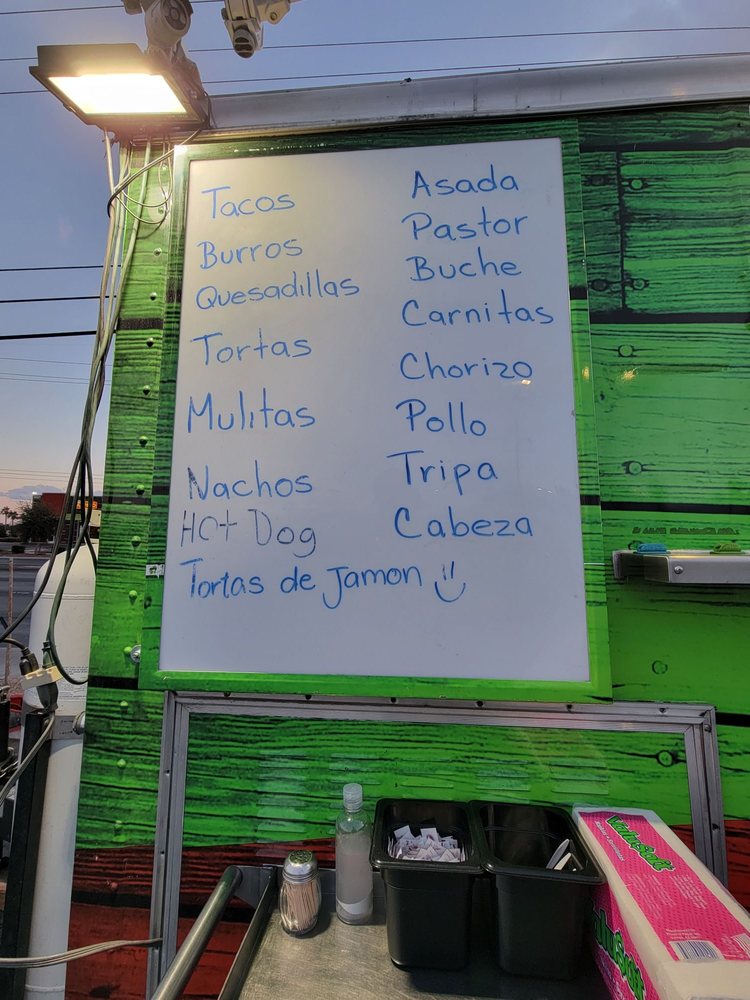 Tacos
Burros
Quesadillas
Tortas
Mulitas
Nachos
Hot Dog
Tortas de Jamon
Asada
Pastor
Buche
Carnitas
Chorizo
Pollo
Tripa
Cabeza
ValuSoft